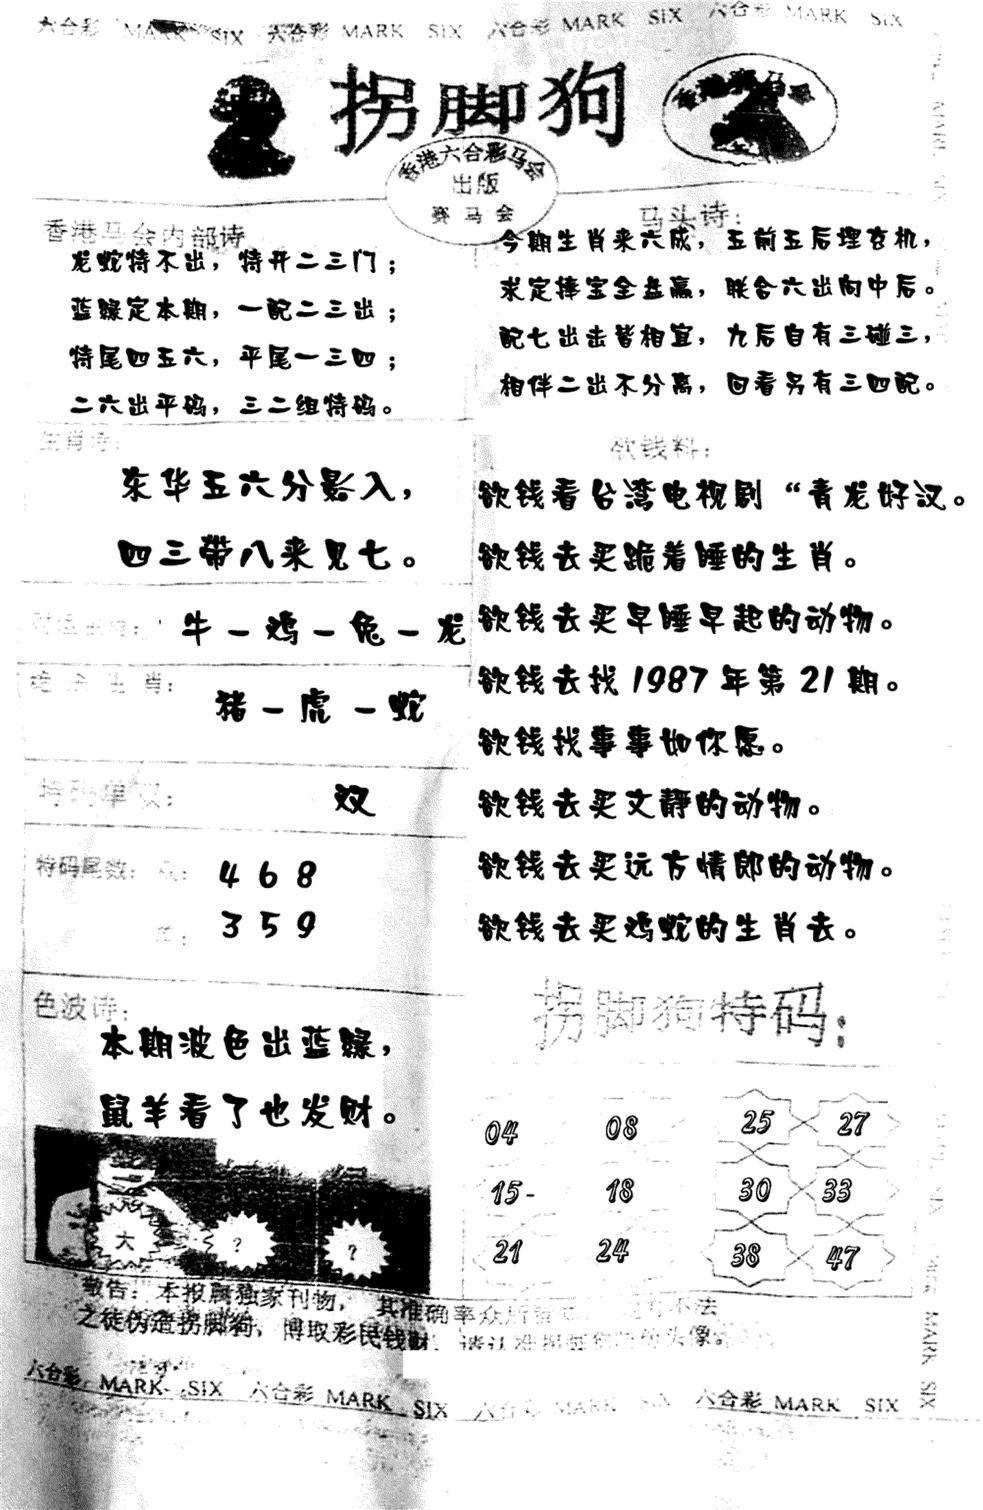 六合彩 MARK SIX 六合彩 MARK SIX 六合彩 MARK SIX 六合彩 MARK SIX
拐脚狗
香港赛马会
香港六合彩马会
出版
赛马会
香港马会内部诗
龙蛇特不出，特开二三门；
蓝绿定本期，一配二三出；
特尾四五六，平尾一三四；
二六出平码，三二组特码。
马头诗：
今期生肖来六成，五前五后埋玄机，
求定捧宝全盘赢，联合六出向中后。
配七出击皆相宜，九后自有三碰三，
相伴二出不分离，回看另有三四配。
生肖诗：
东华五六分影入，
四三带八来见七。
牛－鸡－兔－龙
绝杀生肖：
猪－虎－蛇
特码单双：
双
特码尾数：双：468
单：359
色波诗：
本期波色出蓝绿，
鼠羊看了也发财。
大 ? ?
欲钱料：
欲钱看台湾电视剧“青龙好汉。
欲钱去买跪着睡的生肖。
欲钱去买早睡早起的动物。
欲钱去找1987年第21期。
欲钱找事事如你愿。
欲钱去买文静的动物。
欲钱去买远方情郎的动物。
欲钱去买鸡蛇的生肖去。
拐脚狗特码：
04 08 25 27
15- 18 30 33
21 24 38 47
敬告：本报属独家刊物，其准确率众所 不法
之徒伪造拐脚狗，博取彩民钱财，请认准拐脚狗 头像。
六合彩 MARK SIX 六合彩 MARK SIX 六合彩 MARK SIX 六合彩 MARK SIX
MARK SIX